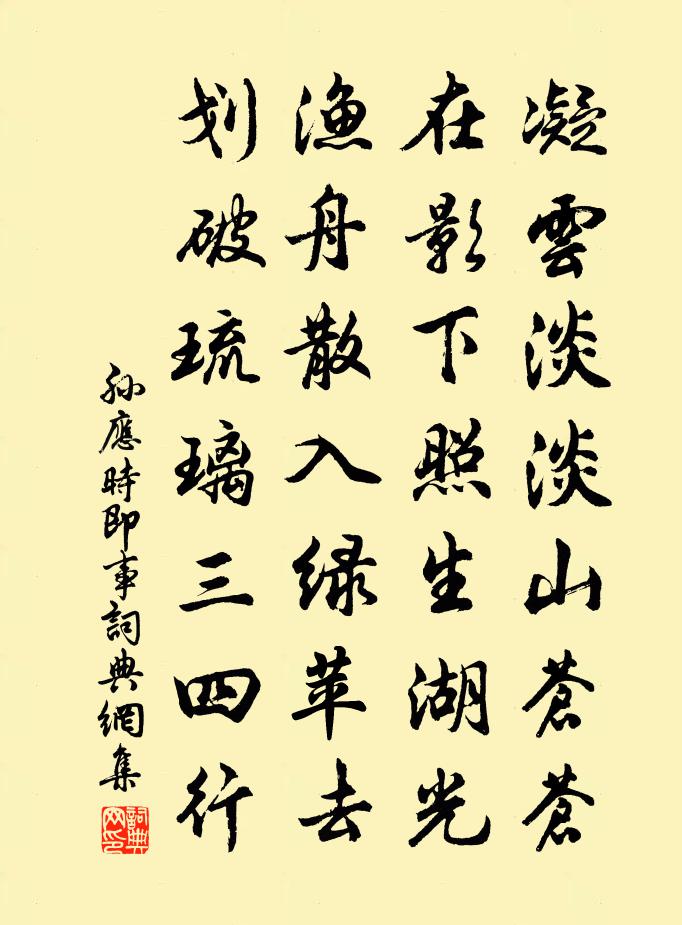 凝雲淡淡山蒼蒼
在影下照生湖光
渔舟散入绿苹去
划破琉璃三四行
孫應時即事詞典網集
詞典网印